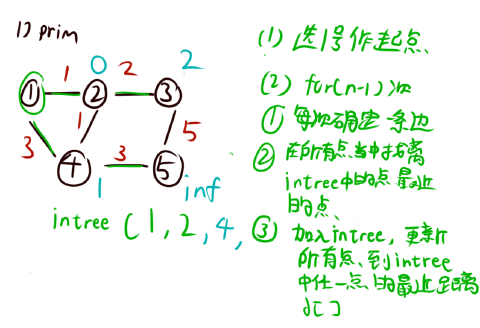 1) prim
0
1
2
2
①
②
③
1
3
5
④
3
⑤
1
inf
intree (1, 2, 4,
(1) 选1号作起点
(2) for(n-1)次
① 每次确定一条边
② 在所有点当中找离
intree中的点最近
的点、
③ 加入intree, 更新
所有点、到intree
中任一点的最近距离
d[]